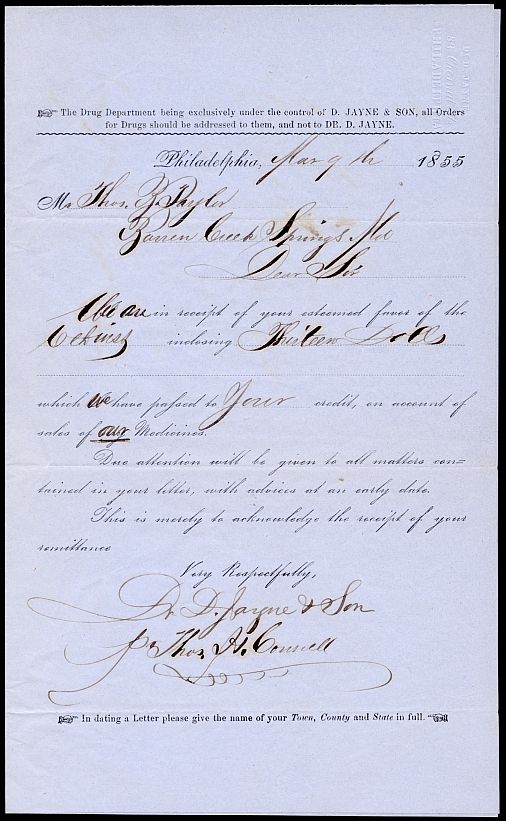 The Drug Department being exclusively under the control of D. JAYNE & SON, all Orders
for Drugs should be addressed to them, and not to DR. D. JAYNE.
Philadelphia, Mar 9th 1855
Mr Thos. B. Taylor
Barren Creek Springs, Md
Dear Sir
We are in receipt of your esteemed favor of the
6th inst inclosing Thirteen Dolls
which we have passed to Your credit, on account of
sales of our Medicines.
Due attention will be given to all matters con=
tained in your letter, with advices at an early date.
This is merely to acknowledge the receipt of your
remittance
Very Respectfully,
Dr. D. Jayne & Son
pr Thos. A. Connell
In dating a Letter please give the name of your Town, County and State in full.